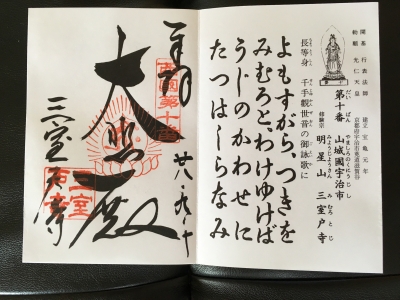 開基 行表法師
勅願 光仁天皇
創立 宝亀元年
京都府宇治市菟道滋賀谷
第十番 山城國宇治市
だいばん やましろのくにうじし
修験宗 明星山 三室戸寺
みょうじょうさん みむろとじ
長等身 千手觀世音の御詠歌に
よもすがら、つきを
みむろと、わけゆけば
うじのかわせに
たつはしらなみ
奉拝
西國第十番
廿八・九・十
大悲殿
三室戸寺